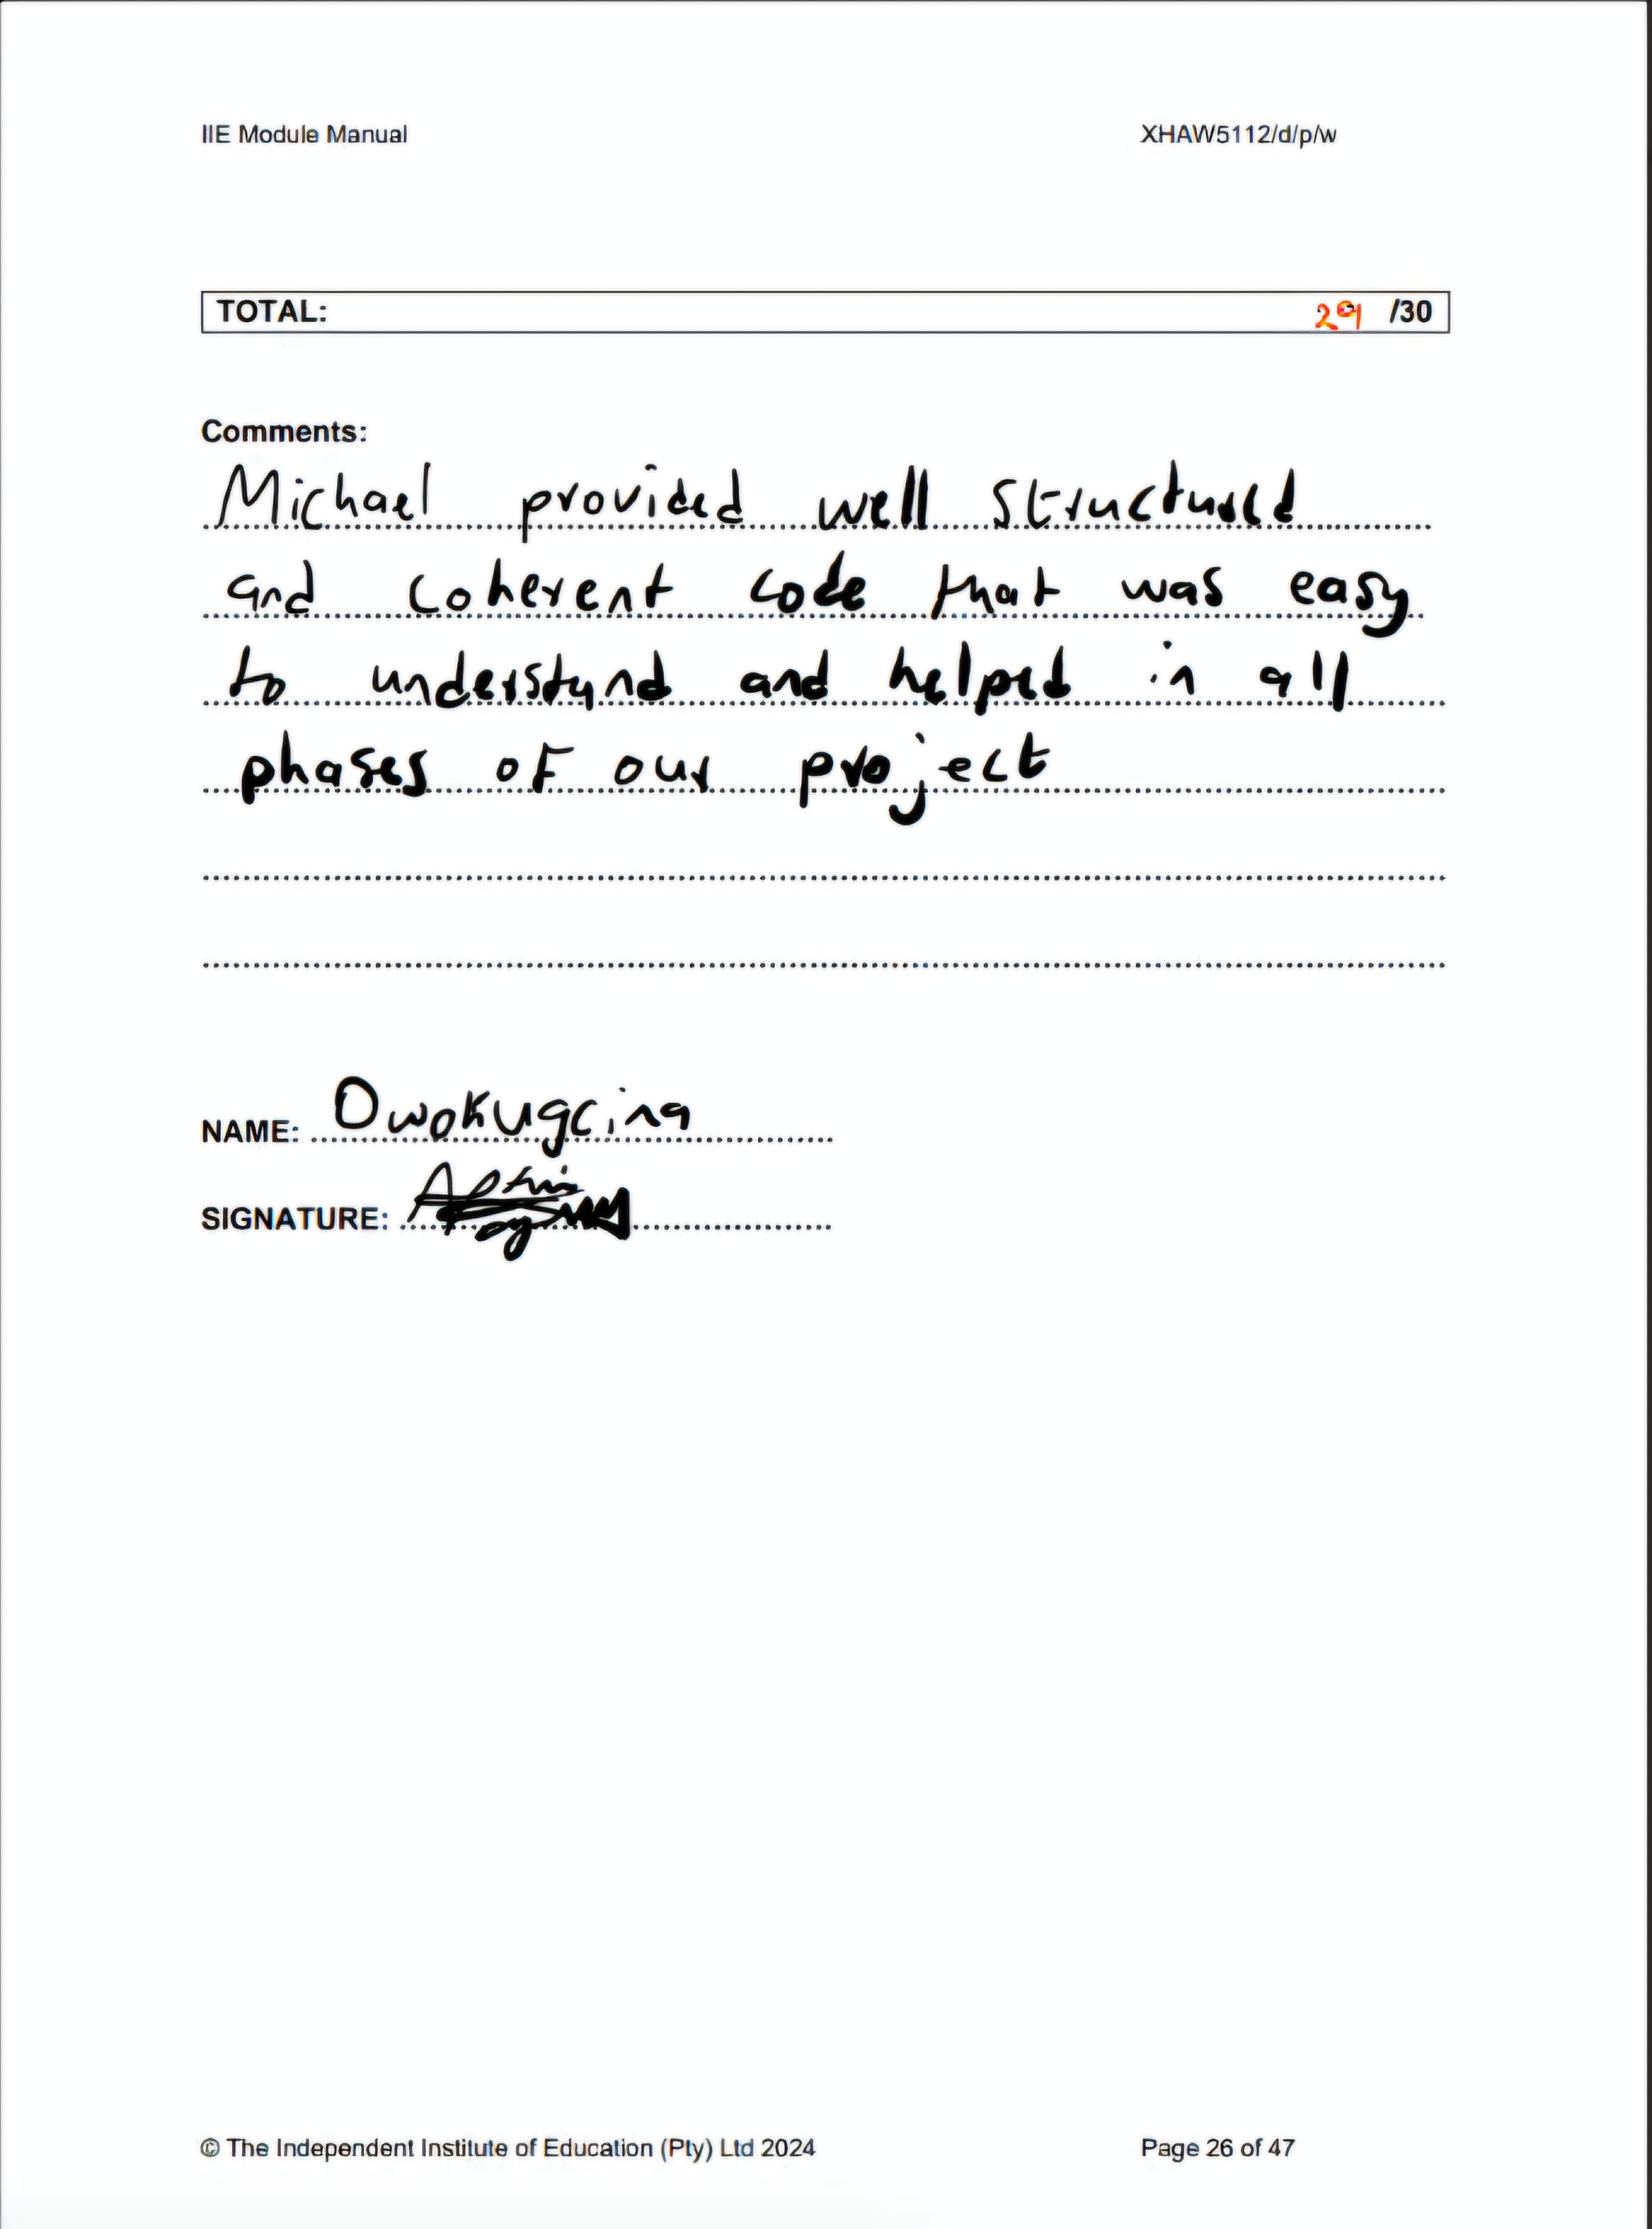 IIE Module Manual XHAW5112/d/p/w
TOTAL: 29 /30
Comments:
Michael provided well structured
and coherent code that was easy
to understand and helped in all
phases of our project
NAME: Owokugcina
SIGNATURE:
© The Independent Institute of Education (Pty) Ltd 2024 Page 26 of 47